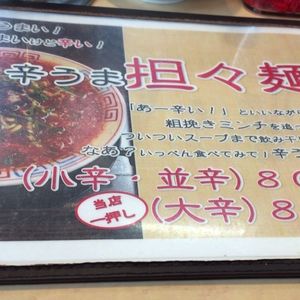 うまい！
まいけど辛い！
辛うま担々麺
「あー辛い！」といいながら
粗挽きミンチを追
ついついスープまで飲み干
なあ？いっぺん食べてみて！辛
(小辛・並辛) 80
当店一押し
(大辛) 8